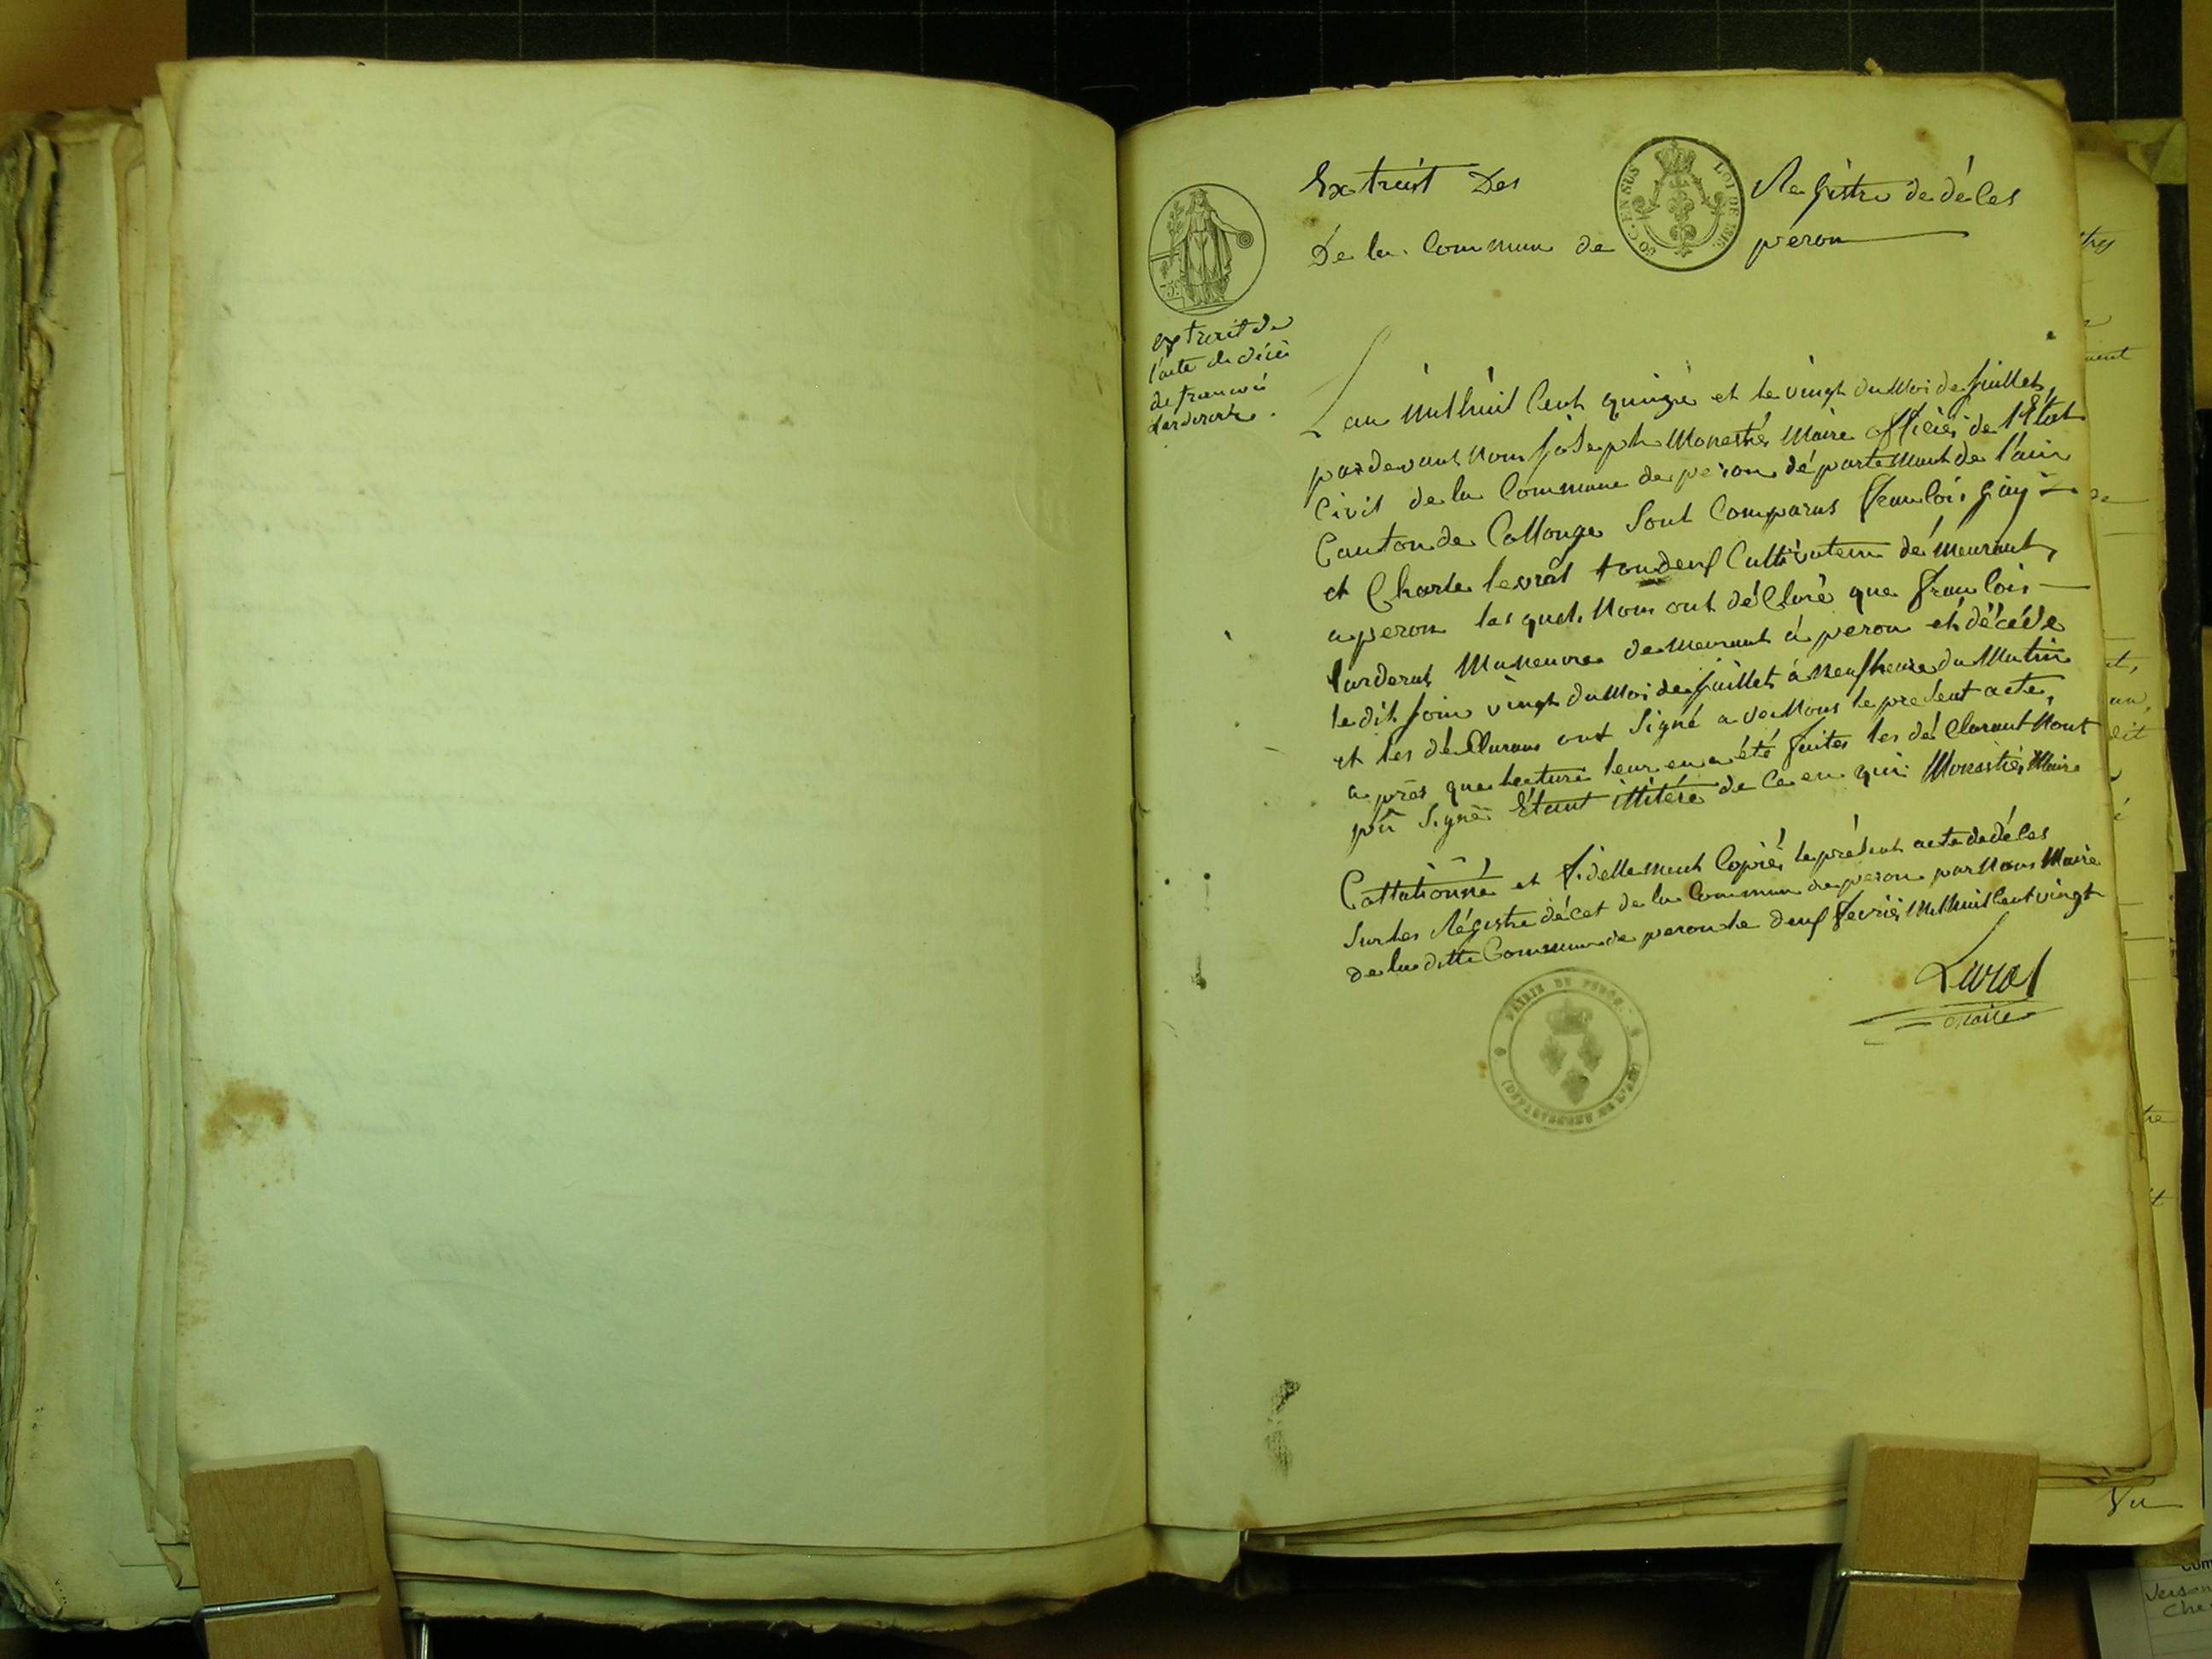 Extrait Des Registre de déces
De la Commune de peron
50 C. EN SUS LOI DE 1816.
75
extrait de
l'acte de décè
de francois
Larderat
L'an milhuit Cent quinze et le vingt du Moi de Juillet,
pardevant Nous Joseph Monestié Maire officiér de l'Etat
Civil de la Commune de peron département de l'ain
Canton de Collonge Sont Comparus francois Gay
et Charle levrat tou deux Cultivateur démeurant,
a peron les quel Nous ont déClaré que francois
Larderat Maneuvre demeurant à peron et décédé
le dit Jour vingt du Moi de Juillet à Neuf heure du Matin
et les déClarans ont Signé avec Nous le present acte,
après que lecture leur en a été faites les déClarant Nont
pû Signér Étant illitéré de Ce en qui Monestié Maire
Collationné et fidellement Copiér le présent acte de déces
Sur les Régistre décet de la Commune de peron par Nous Maire
de la ditte Commune de peron le deux fevriér Milhuit Cent vingt
Levrat
Maire
MAIRIE DE PERON
(DÉPARTEMENT DE L'AIN)
Vu